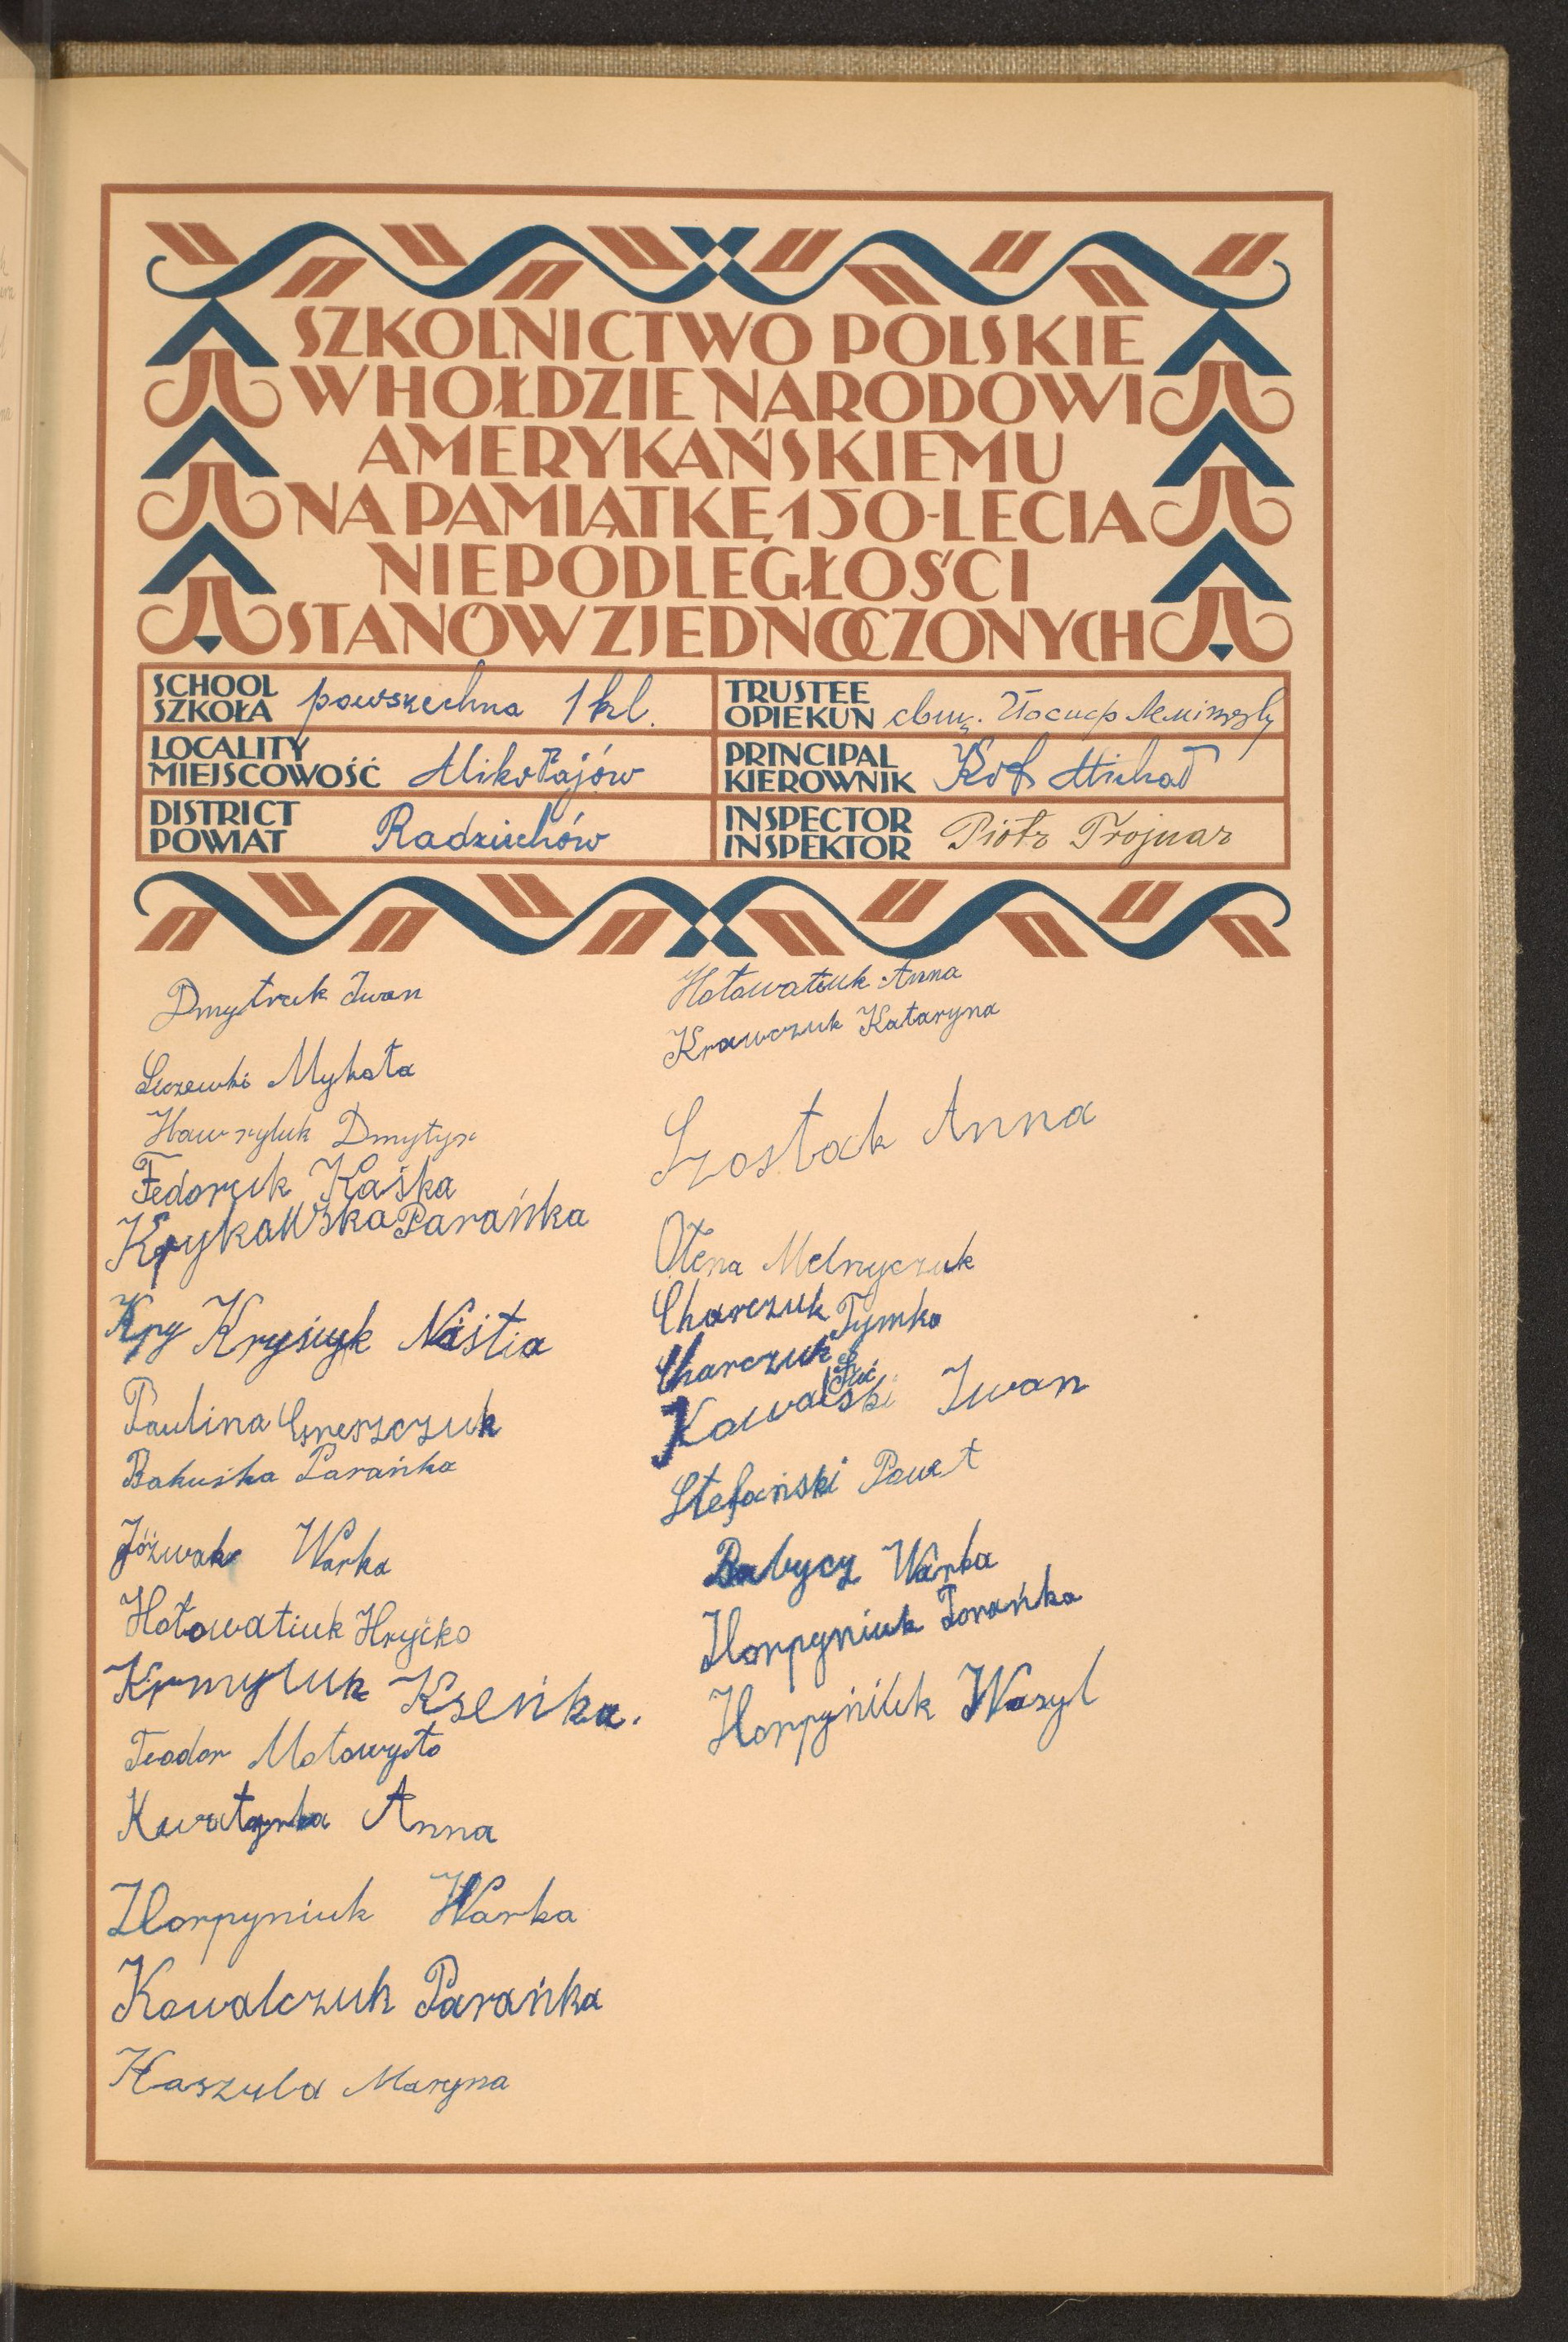 SZKOLNICTWO POLSKIE
W HOŁDZIE NARODOWI
AMERYKAŃSKIEMU
NA PAMIĄTKĘ 150-LECIA
NIEPODLEGŁOŚCI
STANÓW ZJEDNOCZONYCH
SCHOOL
SZKOŁA powszechna 1 kl.
LOCALITY
MIEJSCOWOŚĆ Mikołajów
DISTRICT
POWIAT Radziechów
TRUSTEE
OPIEKUN
PRINCIPAL
KIEROWNIK Kot Michał
INSPECTOR
INSPEKTOR Piotr Trojnar
Dmytruk Iwan
Mykoła
Hawryluk Dmytyr
Fedoruk Kaśka
Krykawska Parańka
Кру Krysiyk Naśtia
Paulina Greszczuk
Bakuśka Parańka
Jóźwak Warka
Hołowatiuk Hryćko
Krmyluk Kseńka.
Teodor Motowyło
Anna
Horpyniuk Warka
Kowalczuk Parańka
Haszula Maryna
Hołowatiuk Anna
Krawczuk Kataryna
Szostak Anna
Ołena Melnyczuk
Charczuk Tymko
Charczuk
Kowalski Iwan
Stefański Paweł
Babycz Warka
Horpyniuk Parańka
Horpyniuk Wasyl